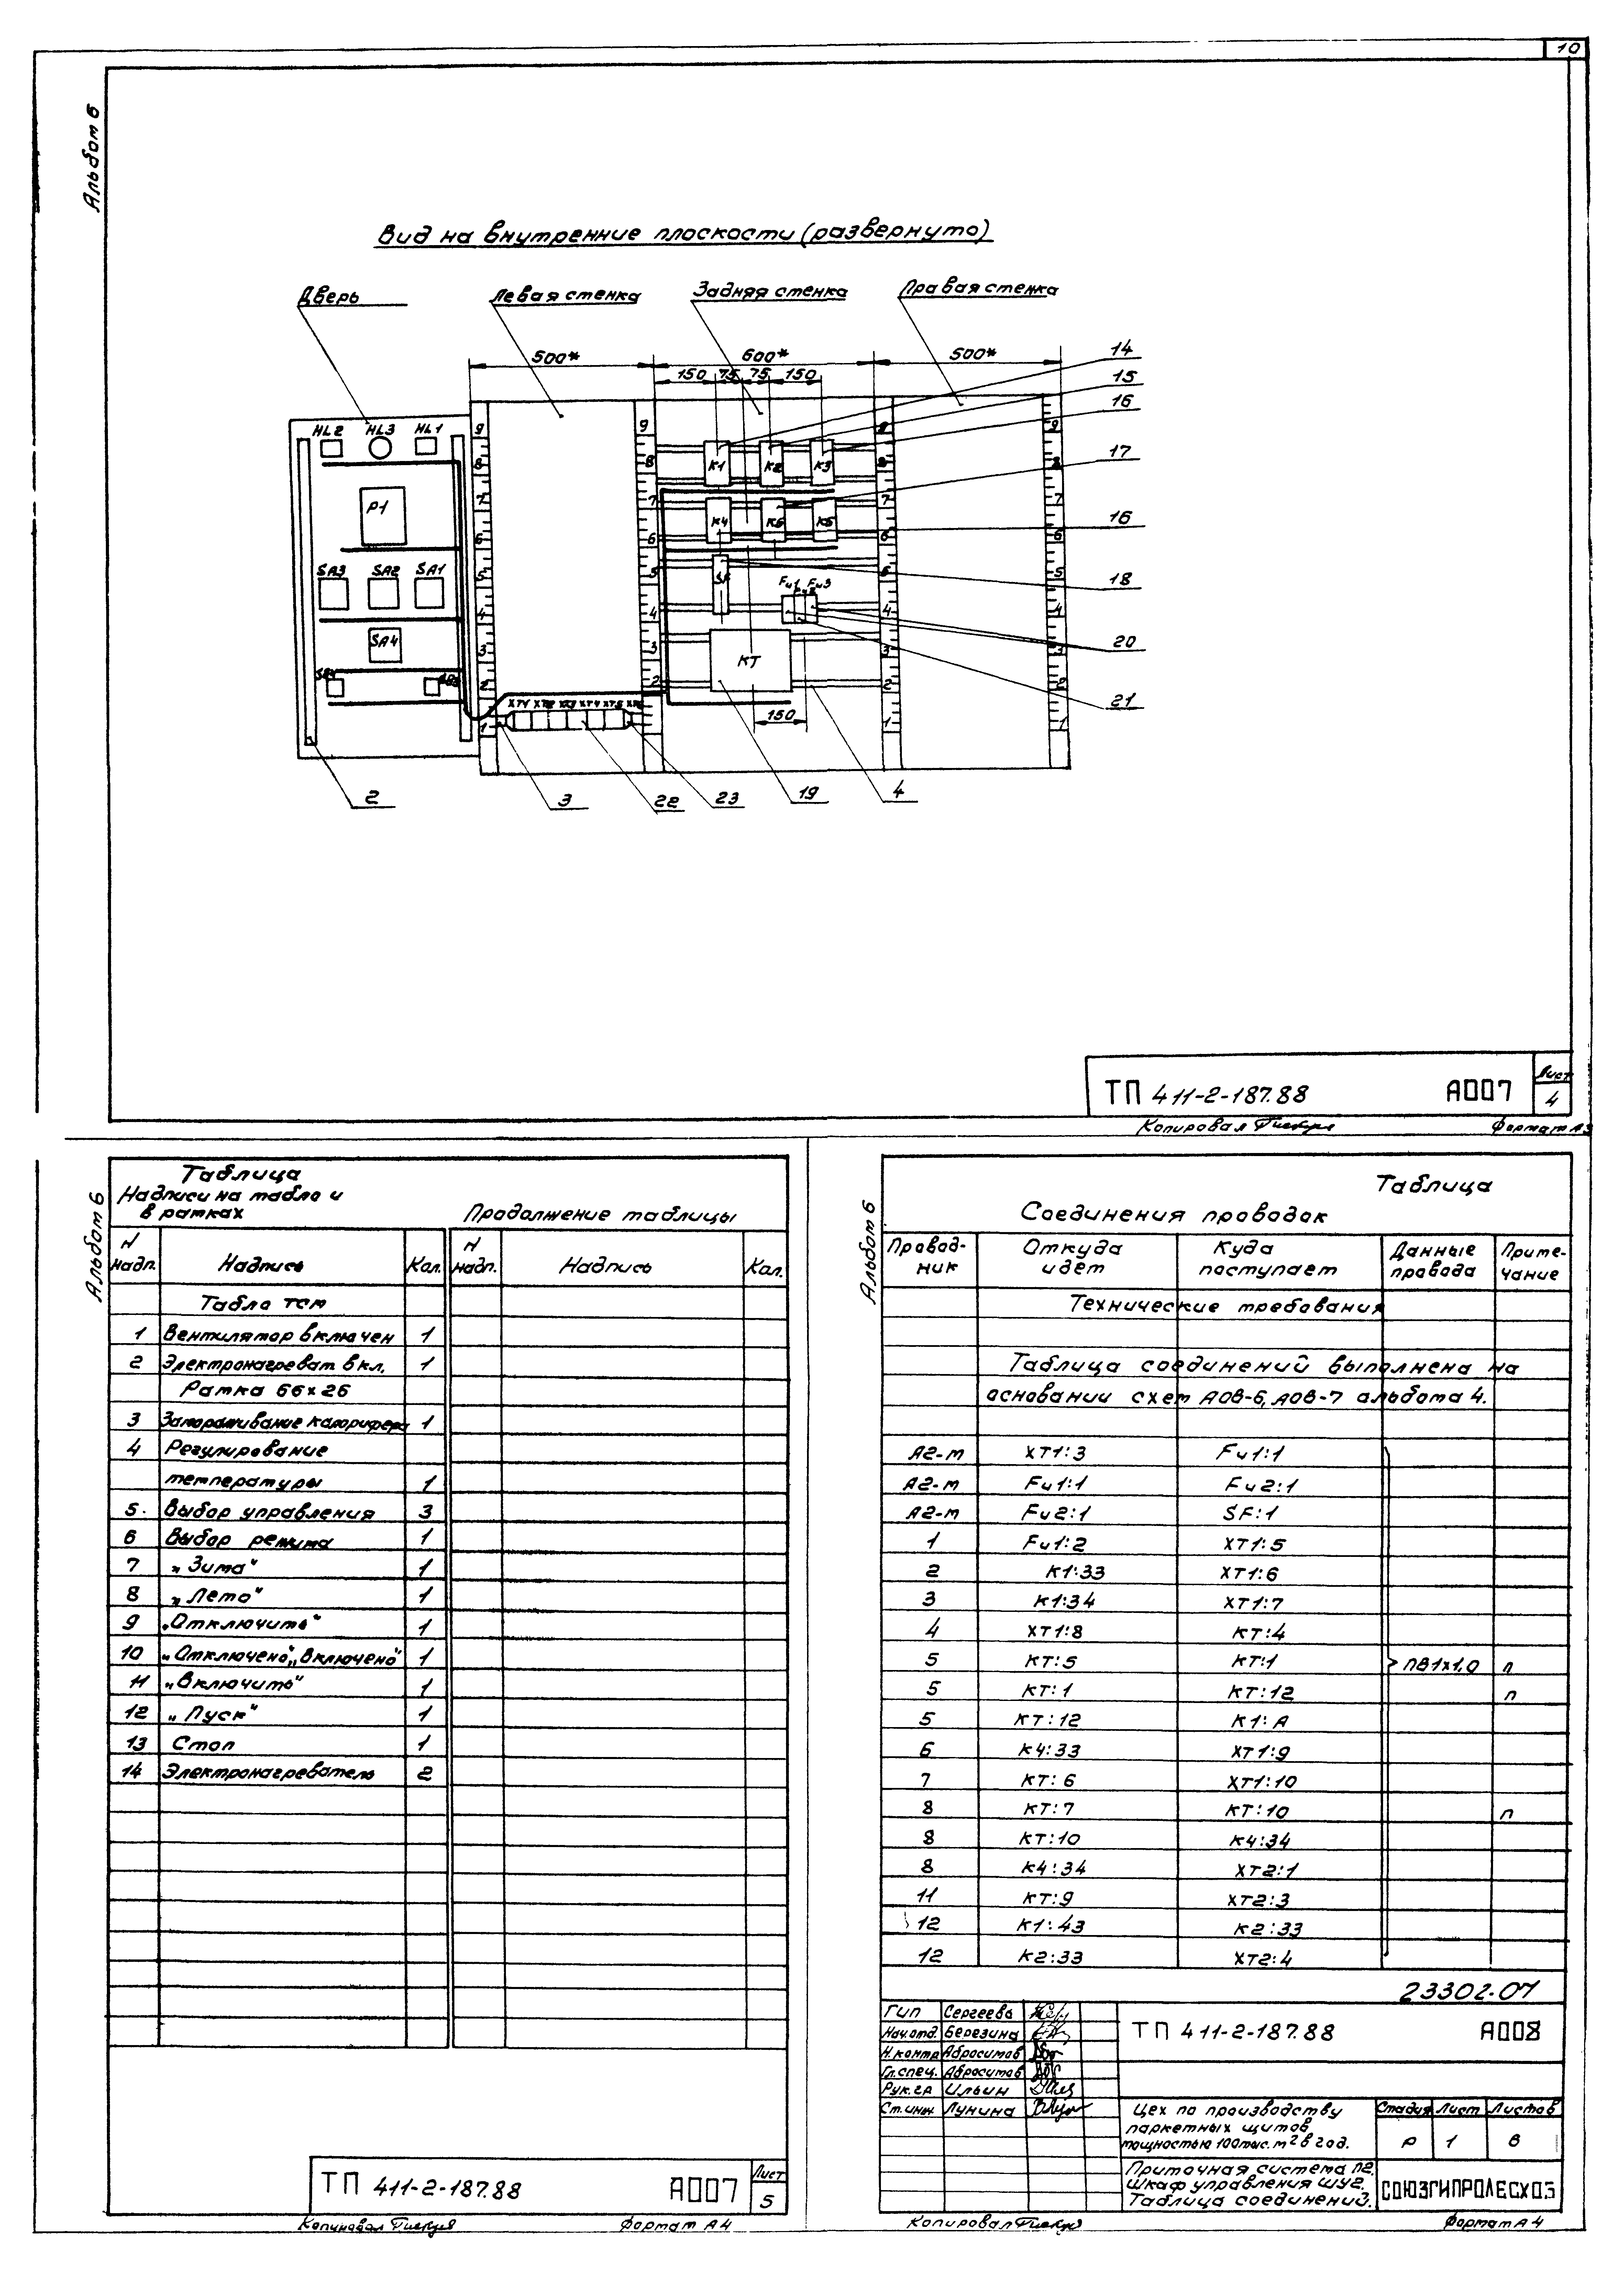 10
Альбом 6
Вид на внутренние плоскости (развернуто)
Дверь
Левая стенка
Задняя стенка
Правая стенка
500* 600* 500*
150 75 75 150
14
15
16
17
16
18
20
21
HL2 HL3 HL1
P1
SA3 SA2 SA1
SA4
9 8 7 6 5 4 3 2 1
9 8 7 6 5 4 3 2
9 8 7 6 5 4 3 2 1
9 8 7 6 5 4 3 2 1
К1 К2 К3
К4 К6 К5
SF
Fu1 Fu2 Fu3
КТ
150
ХТ1 ХТ2 ХТ3 ХТ4 ХТ5
2 3 22 23 19 4
ТП 411-2-187.88 А007
Лист
4
Копировал
Формат А3
Альбом 6
Таблица
Надписи на табло и
в рамках
Продолжение таблицы
N надп. Надпись Кол. N надп. Надпись Кол.
Табло тсм
1 Вентилятор включен 1
2 Электронагреват вкл. 1
Рамка 66х26
3 Замораживание калорифера 1
4 Регулирование
температуры 1
5. Выбор управления 3
6 Выбор режима 1
7 „Зима" 1
8 „Лето" 1
9 „Отключить" 1
10 „Отключено", „включено" 1
11 „Включить" 1
12 „Пуск" 1
13 Стоп 1
14 Электронагреватель 2
ТП 411-2-187.88 А007
Лист
5
Копировал
Формат А4
Альбом 6
Таблица
Соединения проводок
Провод-
ник
Откуда
идет
Куда
поступает
Данные
провода
Приме-
чание
Технические требования
Таблица соединений выполнена на
основании схем АОВ-6, АОВ-7 альбома 4.
А2-м ХТ1:3 Fu1:1
А2-м Fu1:1 Fu2:1
А2-м Fu2:1 SF:1
1 Fu1:2 ХТ1:5
2 К1:33 ХТ1:6
3 К1:34 ХТ1:7
4 ХТ1:8 КТ:4
5 КТ:5 КТ:1 ПВ1х1,0 п
5 КТ:1 КТ:12 п
5 КТ:12 К1:А
6 К4:33 ХТ1:9
7 КТ:6 ХТ1:10
8 КТ:7 КТ:10 п
8 КТ:10 К4:34
8 К4:34 ХТ2:1
11 КТ:9 ХТ2:3
12 К1:43 К2:33
12 К2:33 ХТ2:4
23302-07
ГИП Сергеева
Нач.отд. Березина
Н.контр Абросимов
Гл.спец. Абросимов
Рук.гр Ильин
Ст.инж. Лунина
ТП 411-2-187.88 А008
Цех по производству
паркетных щитов
мощностью 100тыс.м² в год.
Стадия Лист Листов
Р 1 8
Приточная система П2.
Шкаф управления ШУ2.
Таблица соединений.
СОЮЗГИПРОЛЕСХОЗ
Копировал
Формат А4